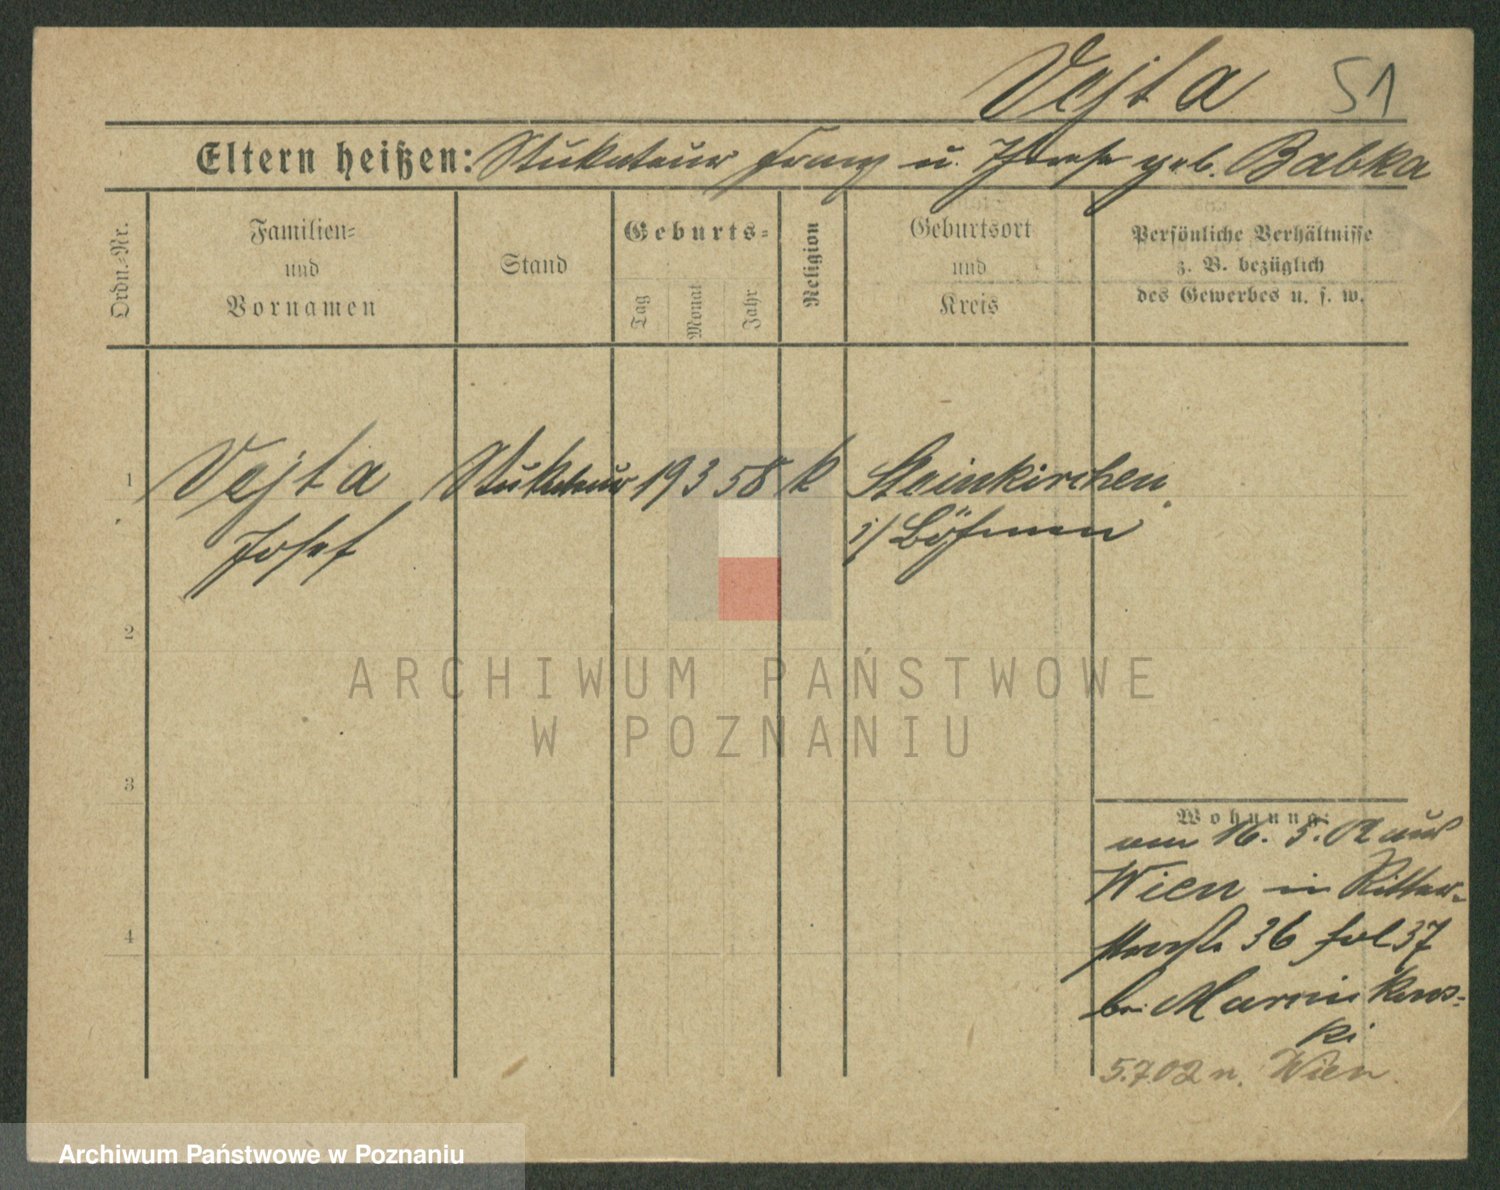 Vejta 51
Eltern heißen: Stukateur Franz u. Therese geb. Babka
Ordn.-Nr.
Familien-
und
Vornamen
Stand
Geburts-
Tag
Monat
Jahr
Religion
Geburtsort
und
Kreis
Persönliche Verhältnisse
z. B. bezüglich
des Gewerbes u. s. w.
1 Vejta Stukateur 19 3 58 k Steinkirchen
Josef i/ Böhmen
2
3
4
Wohnung:
am 16. 5. 02 aus
Wien in Ritter-
straße 36 fol 37
bei
ki
5.7.02 n. Wien
ARCHIWUM PAŃSTWOWE
W POZNANIU
Archiwum Państwowe w Poznaniu